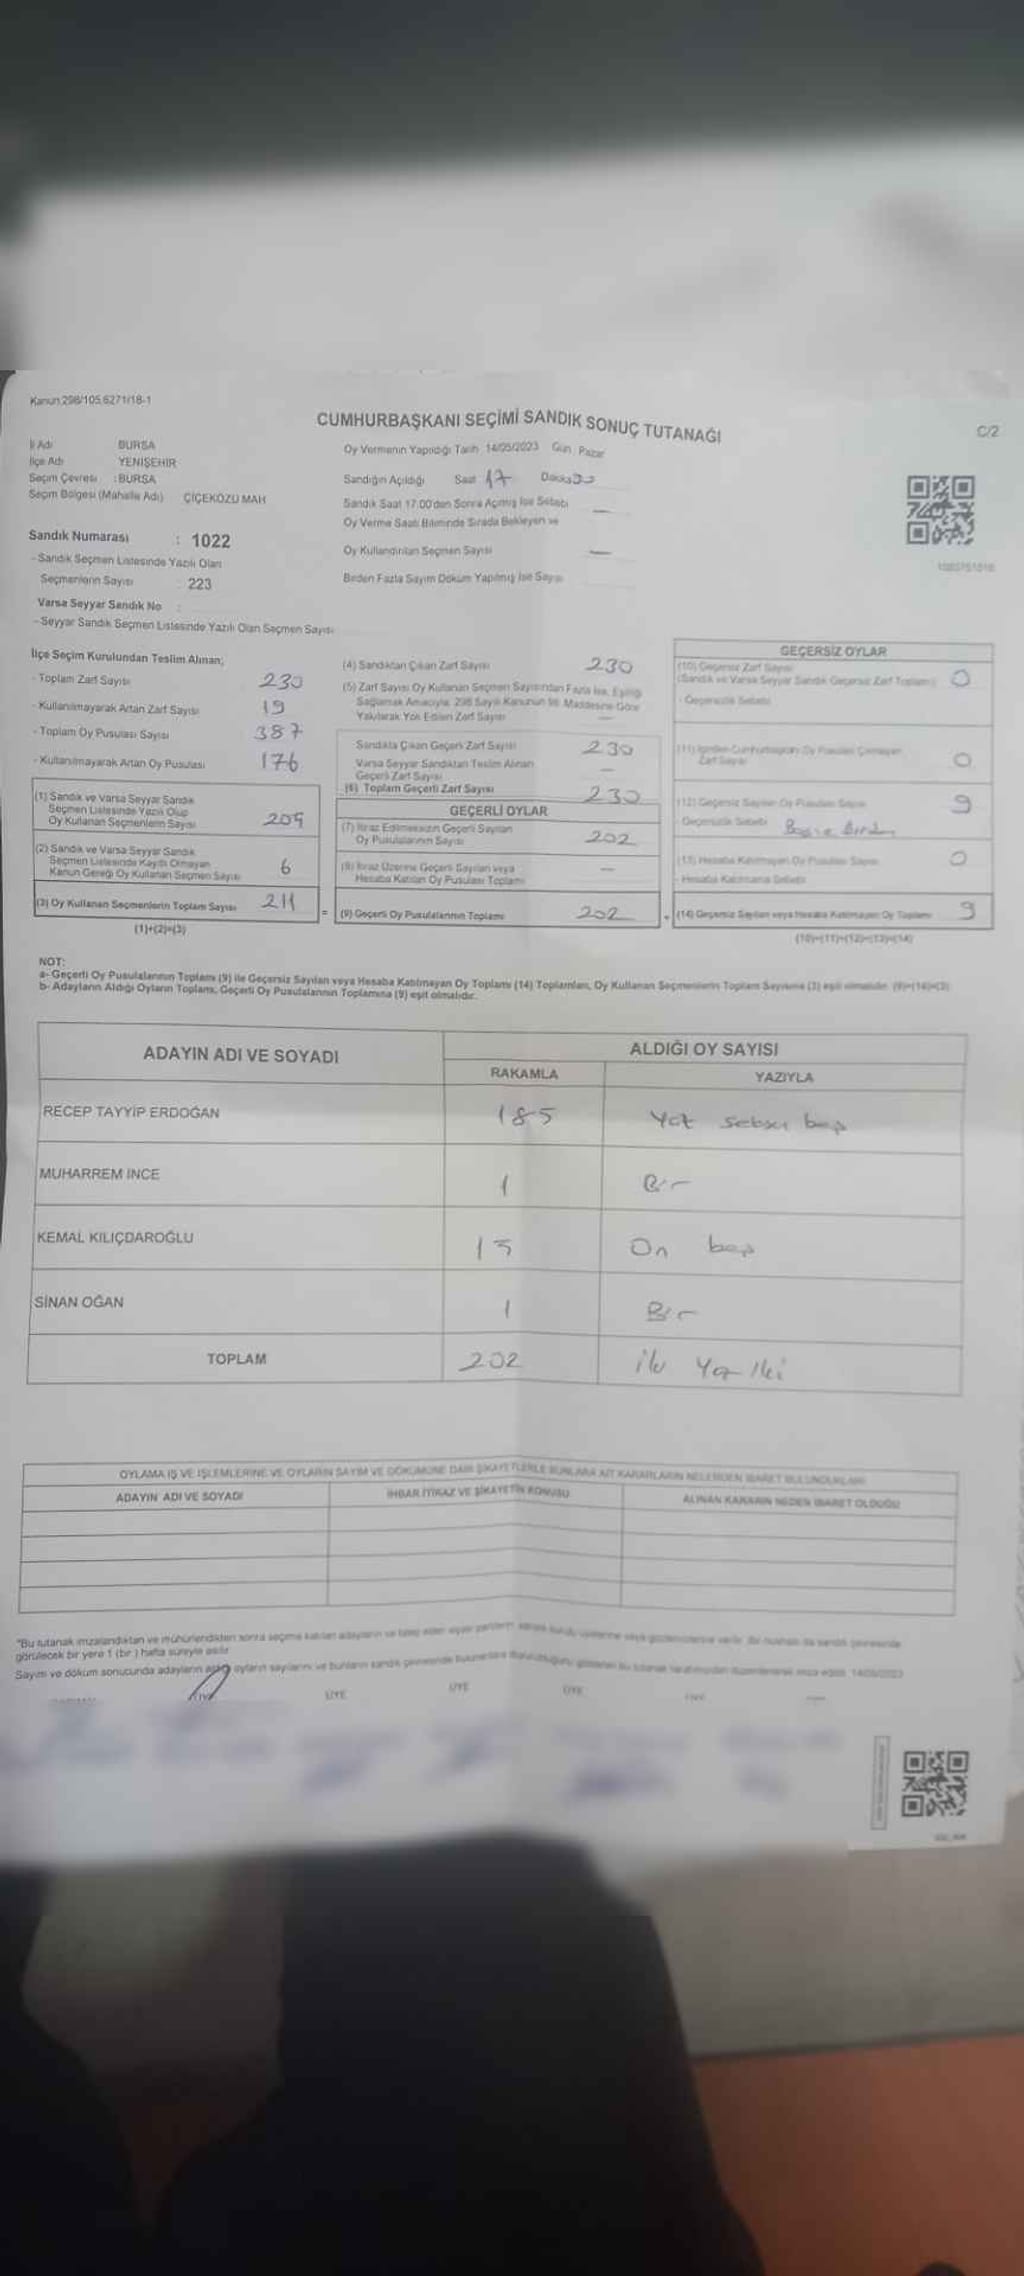 Kanun:298/105,6271/18-1
CUMHURBAŞKANI SEÇİMİ SANDIK SONUÇ TUTANAĞI
C/2
İl Adı BURSA
İlçe Adı YENİŞEHİR
Seçim Çevresi : BURSA
Seçim Bölgesi (Mahalle Adı) ÇİÇEKÖZÜ MAH
Oy Vermenin Yapıldığı Tarih 14/05/2023 Gün Pazar
Sandığın Açıldığı Saat 17 Dakika
Sandık Saat 17:00'den Sonra Açımış İse Sebebi
Oy Verme Saati Bitiminde Sırada Bekleyen ve
Oy Kullandırılan Seçmen Sayısı
Birden Fazla Sayım Döküm Yapılmış İse Sayısı
Sandık Numarası : 1022
- Sandık Seçmen Listesinde Yazılı Olan
Seçmenlerin Sayısı 223
Varsa Seyyar Sandık No :
- Seyyar Sandık Seçmen Listesinde Yazılı Olan Seçmen Sayısı
İlçe Seçim Kurulundan Teslim Alınan;
- Toplam Zarf Sayısı 230
- Kullanılmayarak Artan Zarf Sayısı 19
- Toplam Oy Pusulası Sayısı 387
- Kullanılmayarak Artan Oy Pusulası 176
(1) Sandık ve Varsa Seyyar Sandık
Seçmen Listesinde Yazılı Olup
Oy Kullanan Seçmenlerin Sayısı 205
(2) Sandık ve Varsa Seyyar Sandık
Seçmen Listesinde Kayıtlı Olmayan
Kanun Gereği Oy Kullanan Seçmen Sayısı 6
(3) Oy Kullanan Seçmenlerin Toplam Sayısı 211
(1)+(2)=(3)
(4) Sandıktan Çıkan Zarf Sayısı 230
(5) Zarf Sayısı Oy Kullanan Seçmen Sayısından Fazla İse, Eşitliği
Sağlamak Amacıyla, 298 Sayılı Kanunun 98. Maddesine Göre
Yakılarak Yok Edilen Zarf Sayısı —
Sandıkta Çıkan Geçerli Zarf Sayısı 230
Varsa Seyyar Sandıktan Teslim Alınan
Geçerli Zarf Sayısı —
(6) Toplam Geçerli Zarf Sayısı 230
GEÇERLİ OYLAR
(7) İtiraz Edilmeksizin Geçerli Sayılan
Oy Pusulalarının Sayısı 202
(8) İtiraz Üzerine Geçerli Sayılan veya
Hesaba Katılan Oy Pusulası Toplamı —
= (9) Geçerli Oy Pusulalarının Toplamı 202
GEÇERSİZ OYLAR
(10) Geçersiz Zarf Sayısı
(Sandık ve Varsa Seyyar Sandık Geçersiz Zarf Toplamı) 0
- Geçersizlik Sebebi
Zarf Sayısı 0
(12) Geçersiz Sayılan Oy Pusulası Sayısı 9
- Geçersizlik Sebebi
(13) Hesaba Katılmayan Oy Pusulası Sayısı 0
- Hesaba Katılmama Sebebi
+ (14) Geçersiz Sayılan veya Hesaba Katılmayan Oy Toplamı 9
(10)+(11)+(12)+(13)=(14)
NOT:
a- Geçerli Oy Pusulalarının Toplamı (9) ile Geçersiz Sayılan veya Hesaba Katılmayan Oy Toplamı (14) Toplamları, Oy Kullanan Seçmenlerin Toplam Sayısına (3) eşit olmalıdır. (9)+(14)=(3)
b- Adayların Aldığı Oyların Toplamı, Geçerli Oy Pusulalarının Toplamına (9) eşit olmalıdır.
ADAYIN ADI VE SOYADI ALDIĞI OY SAYISI
RAKAMLA YAZIYLA
RECEP TAYYİP ERDOĞAN 185
MUHARREM İNCE 1 Bir
KEMAL KILIÇDAROĞLU 15 On beş
SİNAN OĞAN 1 Bir
TOPLAM 202 iki Yüz iki
OYLAMA İŞ VE İŞLEMLERİNE VE OYLARIN SAYIM VE DÖKÜMÜNE DAİR ŞİKAYETLERLE BUNLARA AİT KARARLARIN NELERDEN İBARET BULUNDUKLARI
ADAYIN ADI VE SOYADI İHBAR İTİRAZ VE ŞİKAYETİN KONUSU ALINAN KARARIN NEDEN İBARET OLDUĞU
"Bu tutanak imzalandıktan ve mühürlendikten sonra seçime katılan
görülecek bir yere 1 (bir) hafta süreyle asılır.
Sayım ve döküm sonucunda adayların
ÜYE ÜYE ÜYE